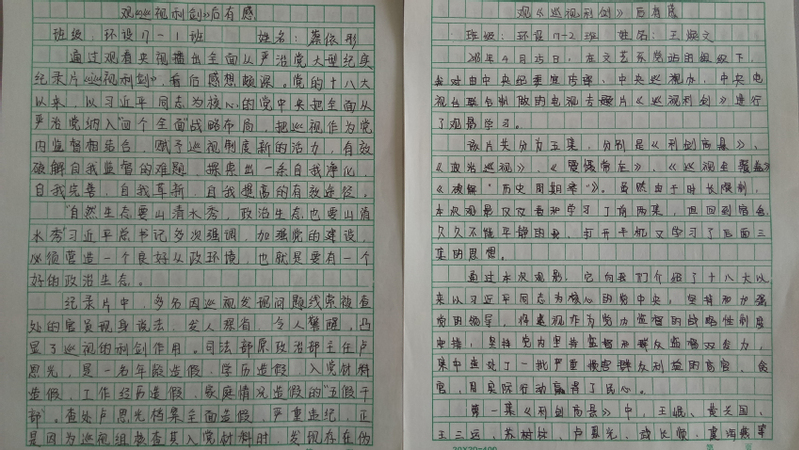 观《巡视利剑》后有感
班级:环设17-1班 姓名:蔡依彤
通过观看央视播出全面从严治党大型纪实
纪录片《巡视利剑》,看后感想颇深。党的十八大
以来,以习近平同志为核心的党中央把全面从
严治党纳入"四个全面"战略布局,把巡视作为党
内监督相结合,赋予巡视制度新的活力,有效
破解自我监督的难题,探索出一条自我净化,
自我完善,自我革新,自我提高的有效途径。
"自然生态要山清水秀,政治生态也要山清
水秀"习近平总书记多次强调,加强党的建设,
必须营造一个良好从政环境,也就是要有一个
好的政治生态。
纪录片中,多名因巡视发现问题线索被查
处的官员现身说法,发人深省,令人警醒,凸
显了巡视的利剑作用。司法部原政治部主任卢
恩光,是一名年龄造假、学历造假、入党材料
造假、工作经历造假、家庭情况造假的"五假干
部"。查处卢恩光档案全面造假,严重违纪,正
是因为巡视组核查其入党材料时,发现存在伪
观《巡视利剑》后有感
班级:环设17-2班 姓名:王 文
年4月25日,在文艺系党站的组织下,
我对由中央纪委宣传部、中央巡视办、中央电
视台联合制做的电视专题片《巡视利剑》进行
了观影学习。
该片共分为五集,分别是《利剑高悬》、
《政治巡视》、《震慑常在》、《巡视全覆盖》
《破解"历史周期率"》。虽然由于时长限制,
本次观影仅仅看和学习了前两集,但回到宿舍
久久不能平静的我,打开手机又学习了后面三
集的思想。
通过本次观影,它向我们介绍了十八大以
来以习近平同志为核心的党中央,坚持和加强
党的领导,将巡视作为党内监督的战略性制度
安排,坚持党内监督和群众监督双发力,
集中查处了一批严重侵害群众利益的高官、贪
官,用实际行动赢得了民心。
第一集《利剑高悬》中,王珉、黄兴国、
王三运、苏树林、卢恩光、武长顺、虞海燕等
20×20=400
第 页